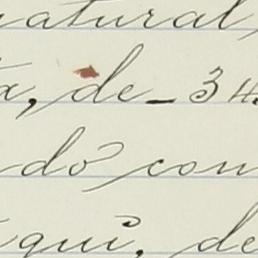 natural,
a, de 34
do con
qui, de